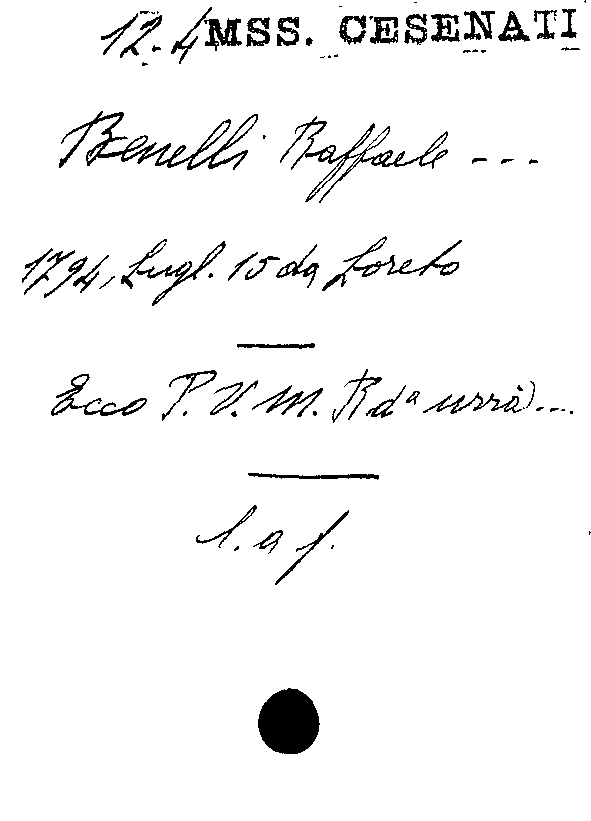 12.4 MSS. CESENATI
Benelli Raffaele ---
1794, Lugl. 15 da Loreto
Ecco P. V. M. Rdª urrà)...
l. a f.